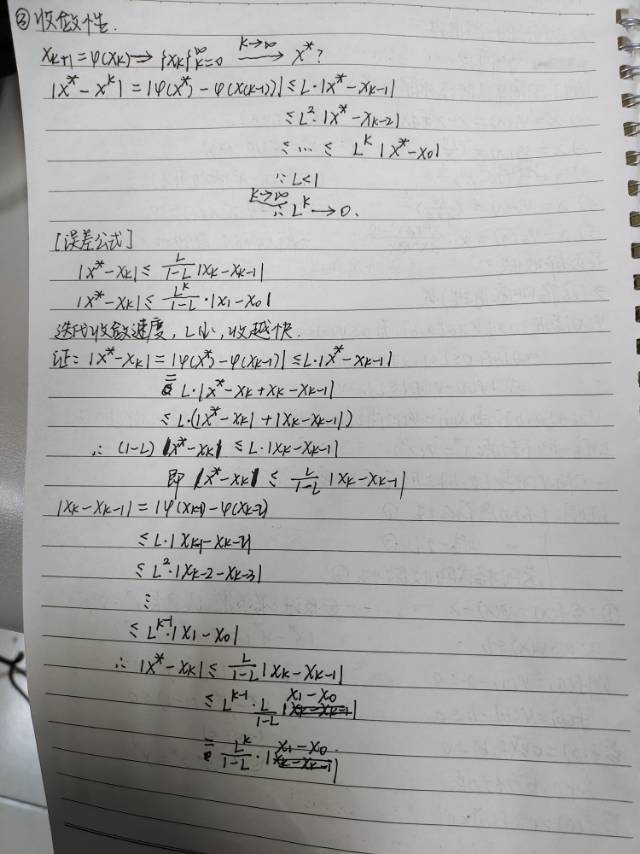 ③收敛性.
x_{k+1}=φ(x_k)⟹{x_k}_{k=0}^∞ —k→∞→ x*?
|x*-x^k|=|φ(x*)-φ(x(k-1))|≤L·|x*-x_{k-1}|
≤L²·|x*-x_{k-2}|
≤…≤ L^k|x*-x_0|
∵L<1
k→∞
∴L^k→0.
[误差公式]
|x*-x_k|≤ L/(1-L) |x_k-x_{k-1}|
|x*-x_k|≤ L^k/(1-L)·|x_1-x_0|
迭代收敛速度,L小,收越快.
证:|x*-x_k|=|φ(x*)-φ(x_{k-1})|≤L·|x*-x_{k-1}|
=L·|x*-x_k+x_k-x_{k-1}|
≤L·(|x*-x_k|+|x_k-x_{k-1}|)
∴(1-L)|x*-x_k|≤L·|x_k-x_{k-1}|
即|x*-x_k|≤ L/(1-L) |x_k-x_{k-1}|
|x_k-x_{k-1}|=|φ(x_{k-1})-φ(x_{k-2})
≤L·|x_{k-1}-x_{k-2}|
≤L²·|x_{k-2}-x_{k-3}|
⋮
≤L^{k-1}·|x_1-x_0|
∴|x*-x_k|≤ L/(1-L) |x_k-x_{k-1}|
≤L^{k-1}·L/(1-L) |x_1-x_0|
=L^k/(1-L)·|x_1-x_0|